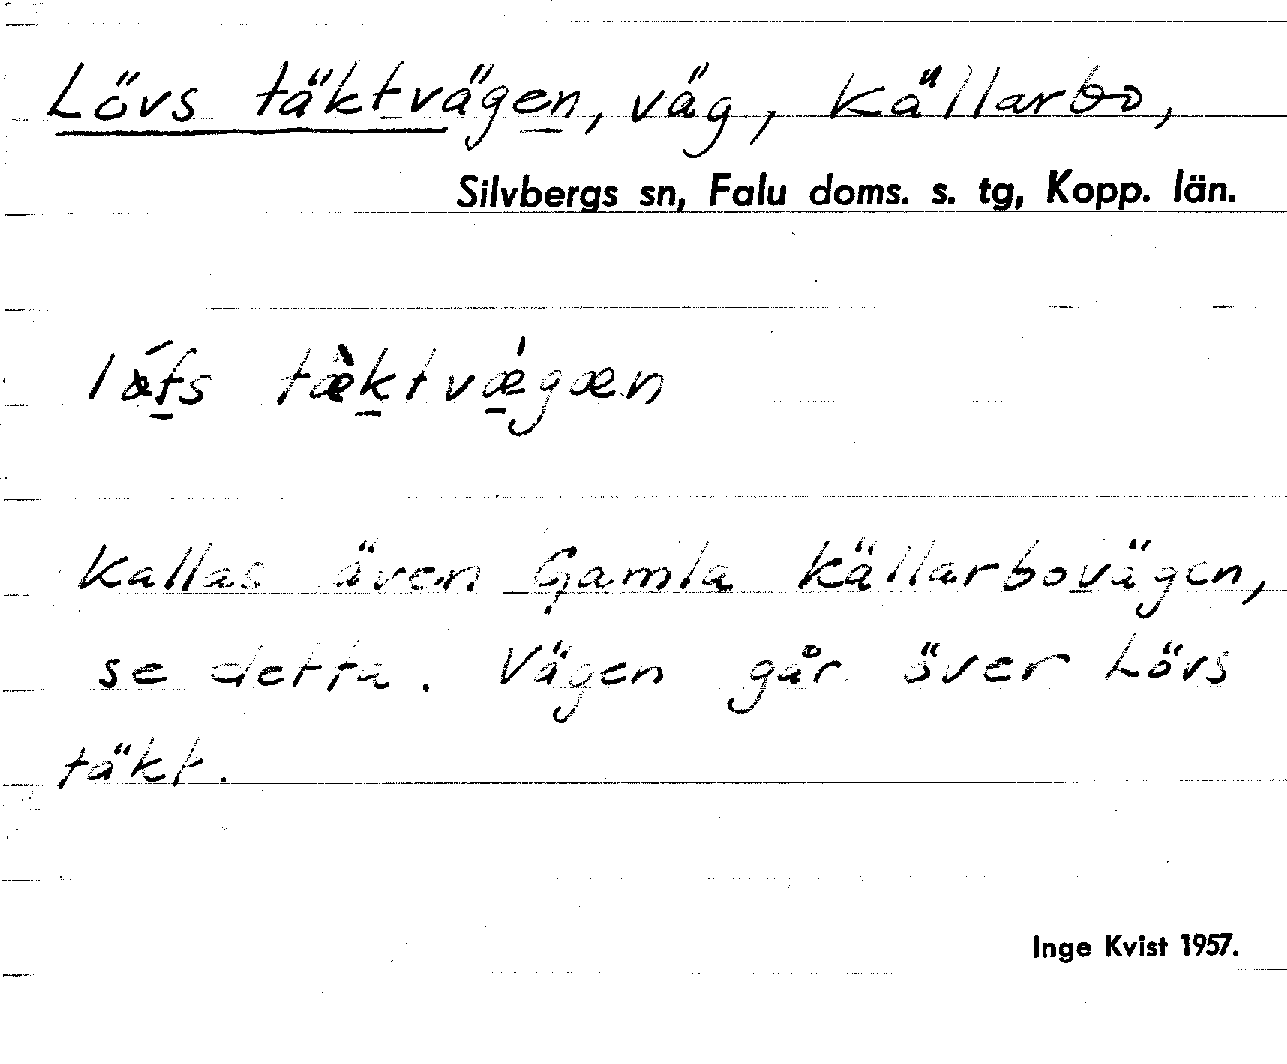 Lövs täktvägen, väg, Källarbo,
Silvbergs sn, Falu doms. s. tg, Kopp. län.
tæ̀ktvǽgæn
Kallas även Gamla källarbovägen,
se detta. Vägen går över Lövs
täkt.
Inge Kvist 1957.